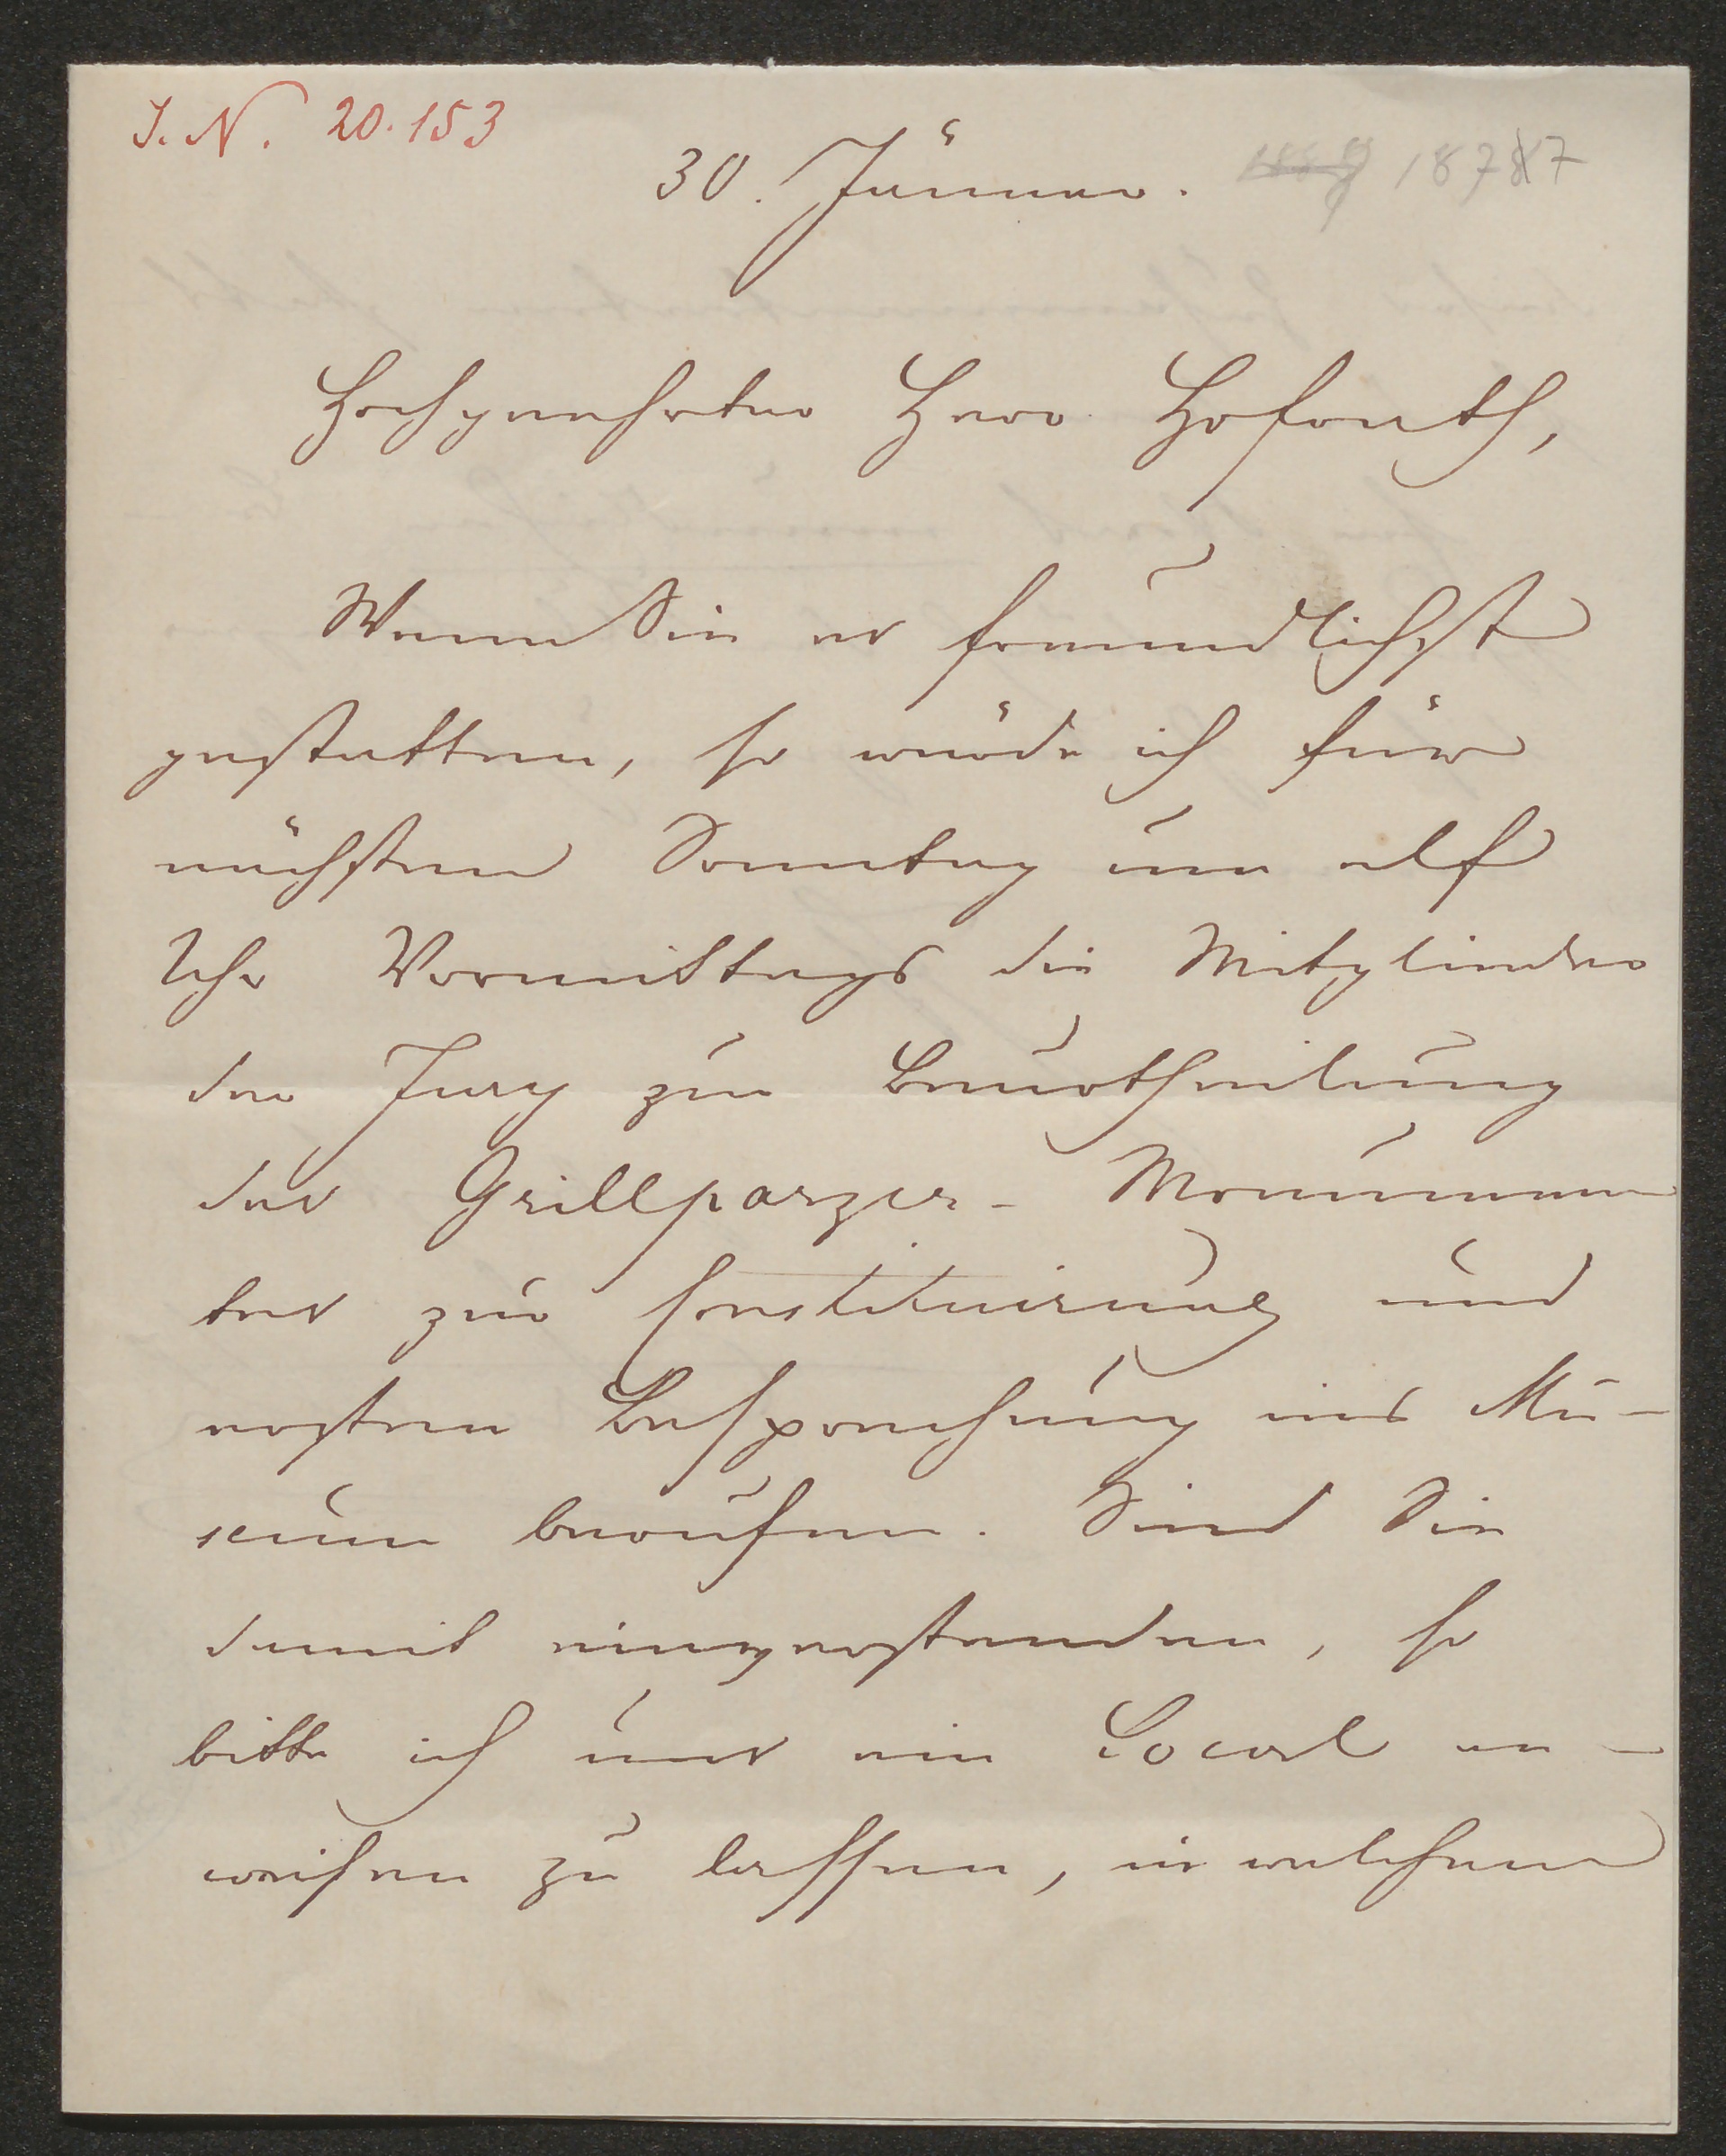 J. N. 20.153
30. Jänner. 1877
Hochgeehrter Herr Hofrath,
Wenn Sie es freundlichst
gestatten, so würde ich für
nächsten Sonntag um elf
Uhr Vormittags die Mitglieder
der Jury zur Beurtheilung
des Grillparzer-Monumen
tes zur Constituirung und
ersten Besprechung ins Mu-
seum berufen. Sind Sie
damit einverstanden, so
bitte ich uns ein Local an-
weisen zu lassen, in welchem